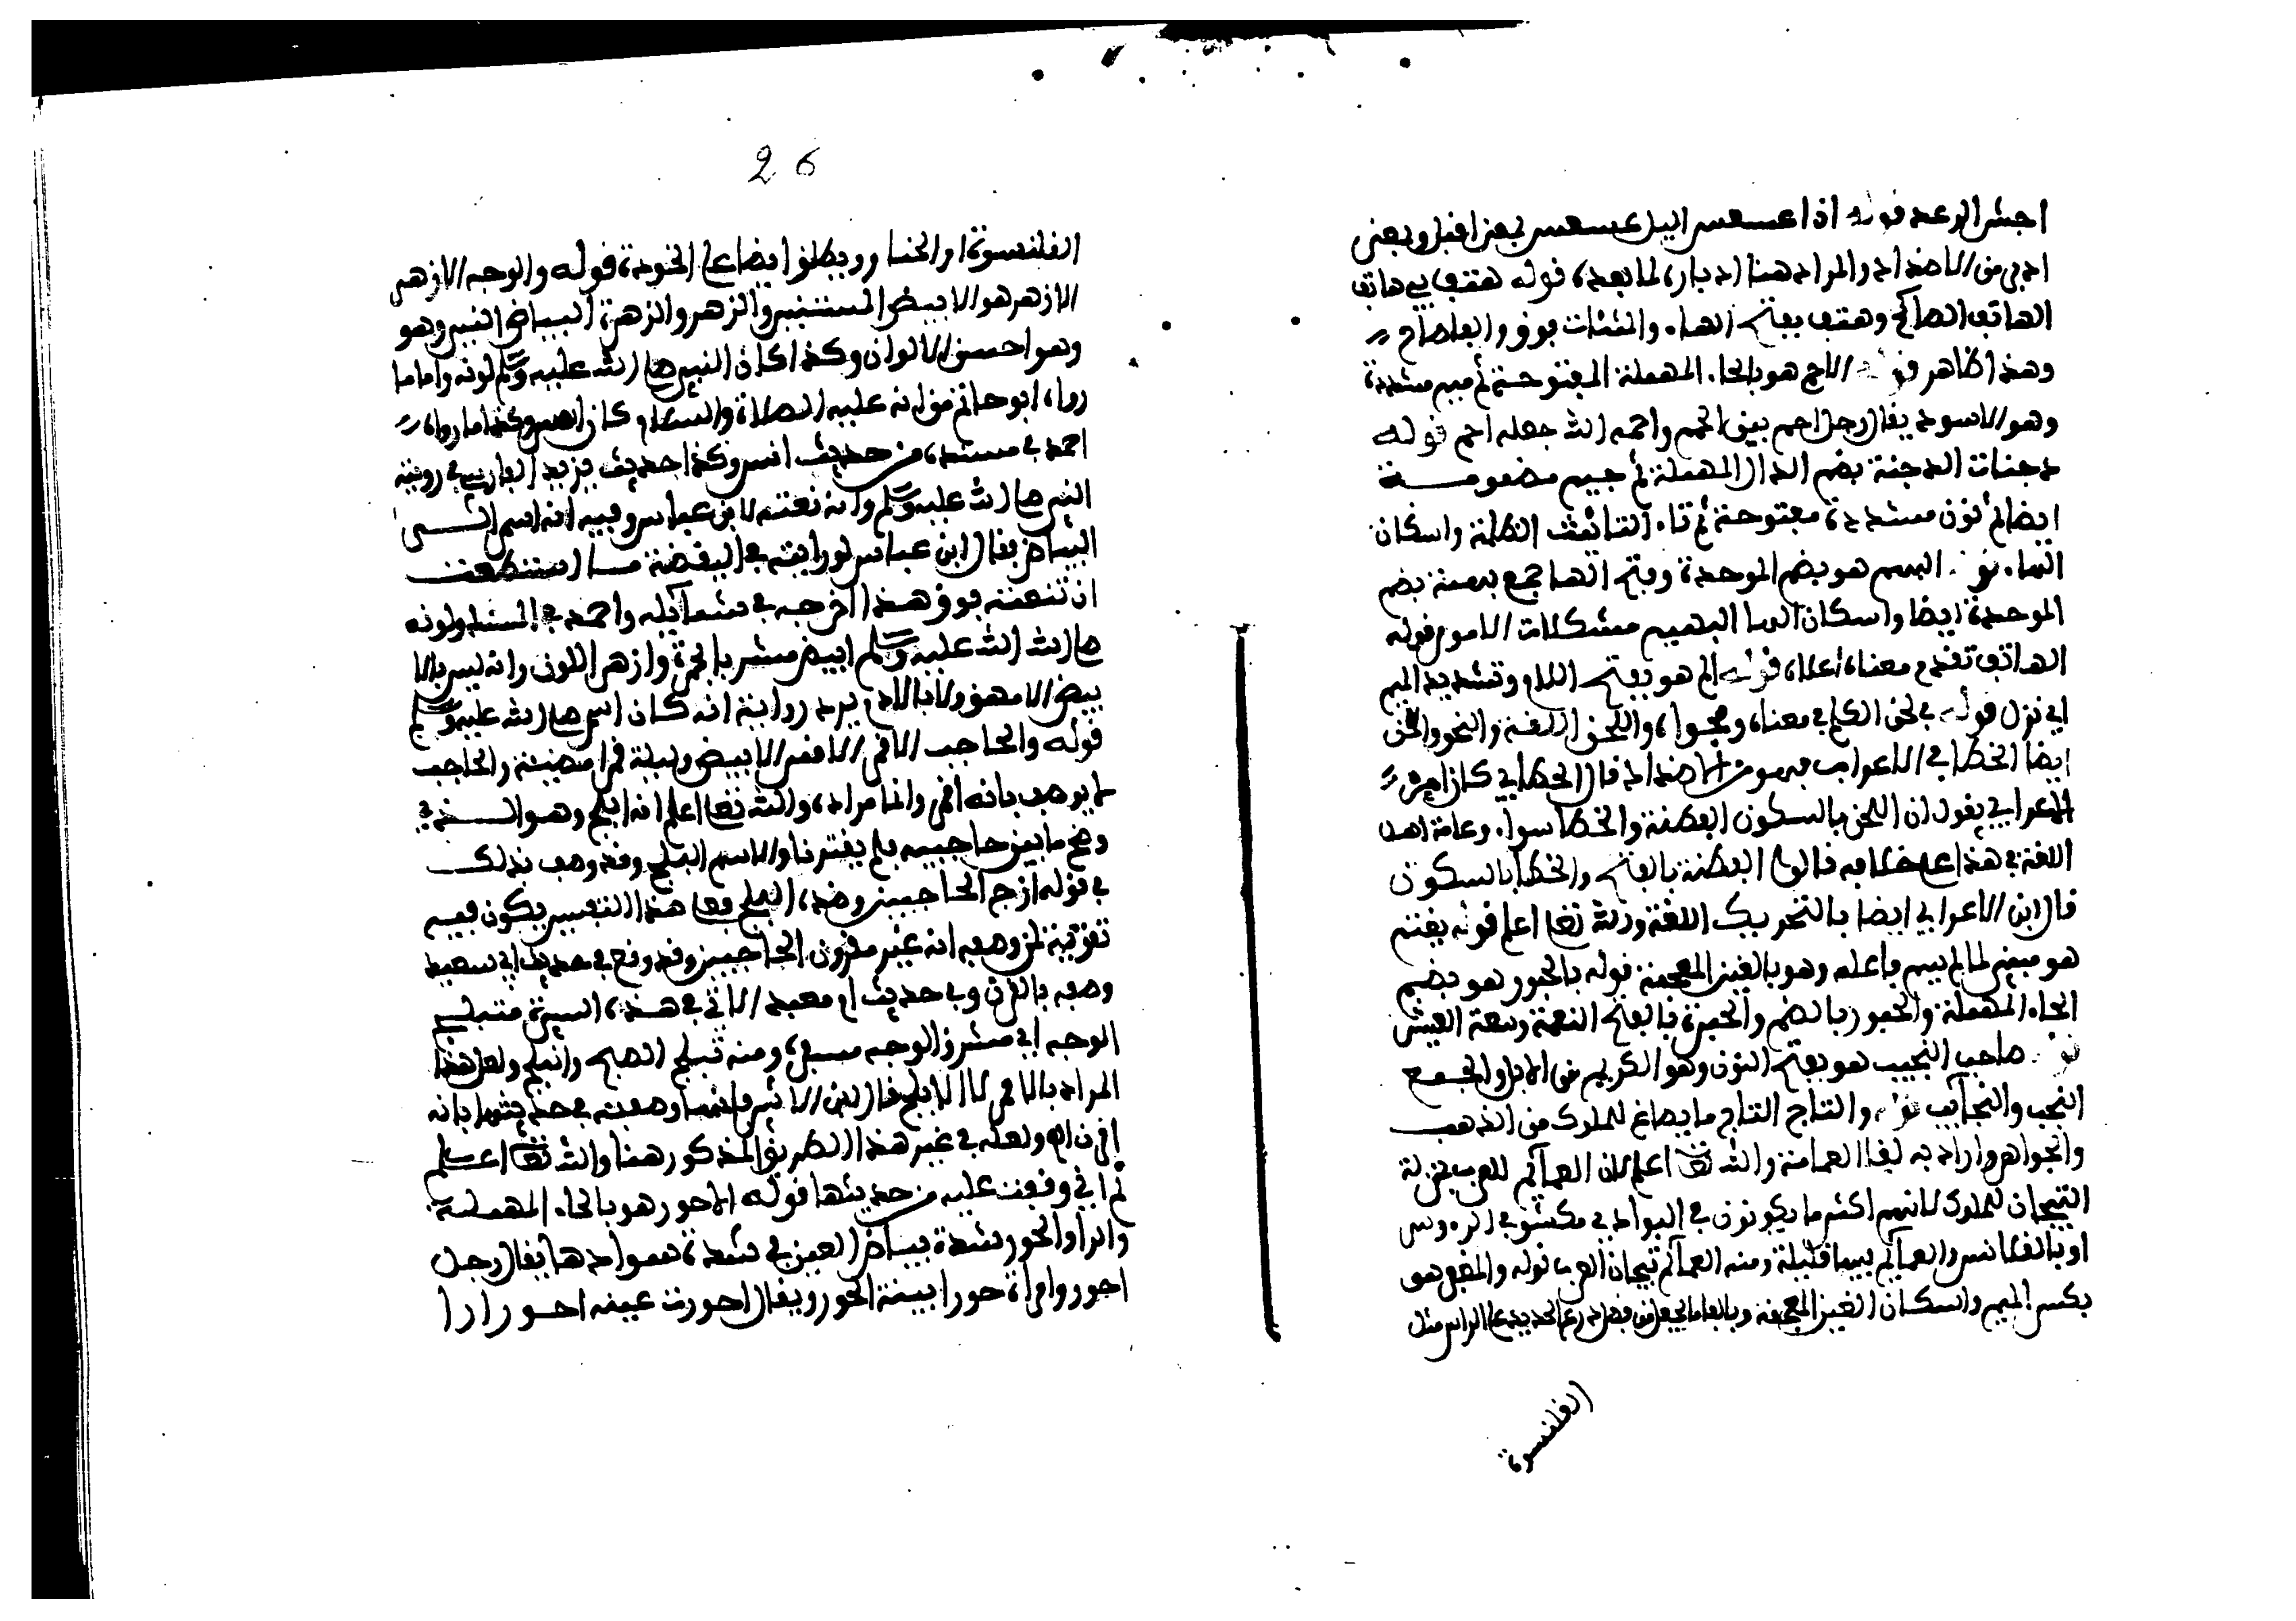 اجش الرعد قوله اذا عسعس اليل عسعس بمعنى اقبل وبمعنى
ادبر من الاضداد والمراد هنا ادباره لما بعده قوله هتف بي هاتف
الهاتف الصائح وهتف بفتح الهاء والمثنات فوق والفا صاح
وهذا ظاهر قوله الاحم هو بالحاء المهملة المفتوحة ثم ميم مشددة
وهو الاسود يقال رجل احم بين الحمم واحمه الله جعله احم قوله
دجنات الدجنة بضم الدال المهملة ثم جيم مضمومة
ايضا ثم نون مشددة مفتوحة ثم تاء التانيث الظلمة واسكان
الهاء قوله البهم هو بضم الموحدة وفتح الها جمع بهمة بضم
الموحدة ايضا واسكان الها البهيم مشكلات الامور قوله
الهاتف تقدم معناه اعلاه قوله الم هو بفتح اللام وتشديد الميم
اي نزل قوله في لحن الكلام في معناه وفحواه واللحن اللغة والنحو واللحن
ايضا الخطا في الاعراب فهو من الاضداد قال الخطابي كان ابن
الاعرابي يقول ان اللحن بالسكون الفطنة والخطا سواء وعامة اهل
اللغة في هذا على خلافه قالوا الفطنة بالفتح والخطا بالسكون
قال ابن الاعرابي ايضا بالتحريك اللغة والله تعا اعلم قوله بغتة
هو مبني لما لم يسم فاعله وهو بالغين المعجمة قوله بالحبور هو بضم
الحاء المهملة والحبور بالضم والحبرة بالفتح النعمة وسعة العيش
قوله صاحب النجيب هو بفتح النون وهو الكريم من الابل والجمع
النجب والنجائب قوله والتاج التاج ما يصاغ للملوك من الذهب
والجواهر واراد به ليفا العمامة والله تعا اعلم لان العمائم للعرب بمنزلة
التيجان للملوك لانهم اكثر ما يكونون في البوادي مكشوفي الرءوس
او بالقلانس والعمائم فيها قليلة ومنه العمائم تيجان العرب قوله والمغفر هو
بكسر الميم واسكان الغين المعجمة وبالفا ما يجعل من فضل درع الحديد على الراس مثل
القلنسوة
26
القلنسوة او الخمار ويطلق ايضا على الخودة قوله والوجه الازهر
الازهر هو الابيض المستنير والزهر والزهرة البياض النير وهو
وهو احسن الالوان وكذا كان النبي صلى الله عليه وسلم لونه واما ما
رواه ابو حاتم من انه عليه الصلاة والسلام كان اسمر وكذا ما رواه
احمد في مسنده من حديث انس وكذا حديث يزيد الفارسي في روية
النبي صلى الله عليه وسلم وانه نعته لابن عباس وفيه انه اسمر الى
البياض فقال ابن عباس لو رايته في اليقضة ما استطعت
ان تنعته فوق هذا اخرجه في شمائله واحمد في المسند ولونه
صلى الله الله عليه وسلم ابيض مشربا بالحمرة وازهر اللون وانه ليس بالا
بيض الامهق ولا بالادم يرد رواية انه كان اسمر صلى الله عليه وسلم
قوله والحاجب الاقمر الاقمر الابيض وليلة قمرا مضيئة والحاجب
لم يوصف بانه اقمر وانما مراده والله تعا اعلم انه ابلج وهو الذي
وضح ما بين حاجبيه فلم يقترنا والاسم البلج وقد وصف بذلك
في قوله ازج الحاجبين وضده البلج فعلى هذا التفسير يكون فيه
تقوية لمن وصفه انه غير مقرون الحاجبين وقد وقع في حديث ابي سعيد
وصفه بالقرن وفي حديث ام معبد الاتي في هذه السيرة متبلج
الوجه اي مشرق الوجه مسفره ومنه تبلج الصبح وانبلج ولعل هذا
المراد بالاقمر لا الابلج قال ابن الاثير فانها وصفته في حديثها بانه
اقرن اه ولعله في غير هذا الطريق المذكور هنا والله تعا اعلم
ثم اني وقفت عليه من حديثها قوله الاحور هو بالحاء المهملة
والرا والحور شدة بياض العين في شدة سوادها يقال رجل
احور وامراة حورا بينة الحور ويقال احورت عينه احورارا